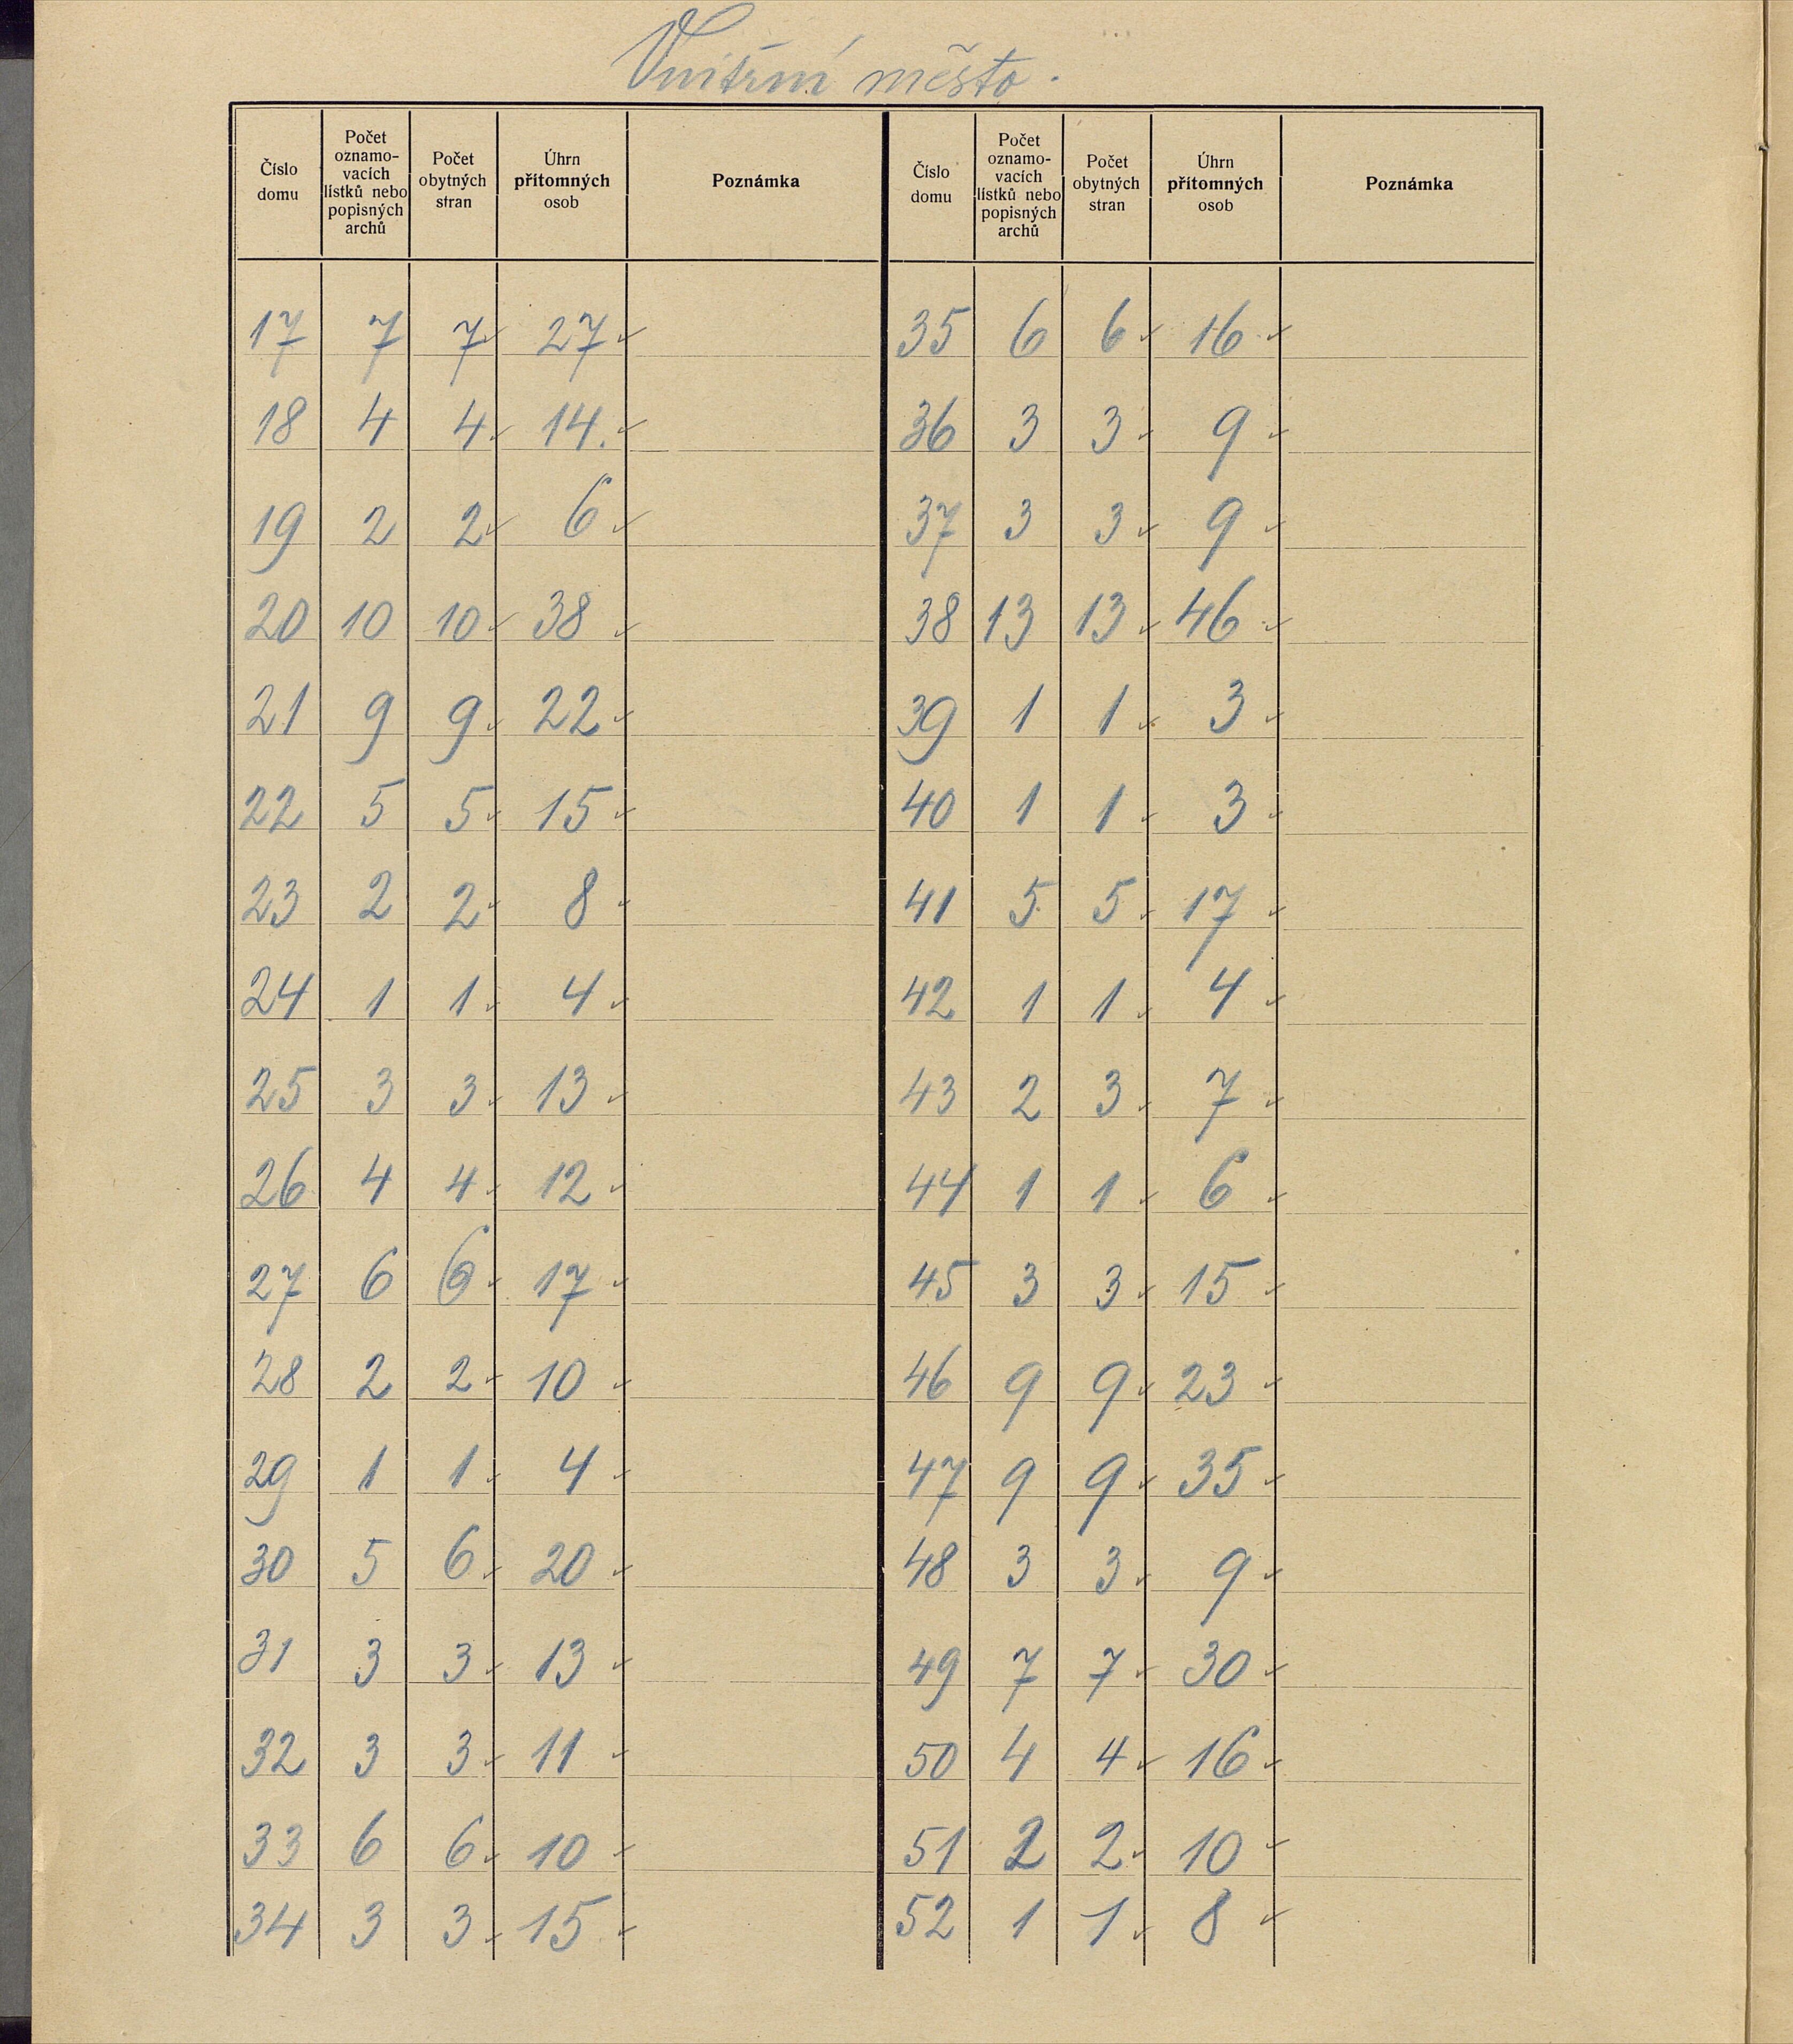 Vnitřní město.
Číslo domu | Počet oznamo-vacích lístků nebo popisných archů | Počet obytných stran | Úhrn přítomných osob | Poznámka | Číslo domu | Počet oznamo-vacích lístků nebo popisných archů | Počet obytných stran | Úhrn přítomných osob | Poznámka
17 7 7 27 35 6 6 16
18 4 4 14. 36 3 3 9
19 2 2 6 37 3 3 9
20 10 10 38 38 13 13 46
21 9 9 22 39 1 1 3
22 5 5 15 40 1 1 3
23 2 2 8 41 5 5 17
24 1 1 4 42 1 1 4
25 3 3 13 43 2 3 7
26 4 4 12 44 1 1 6
27 6 6 17 45 3 3 15
28 2 2 10 46 9 9 23
29 1 1 4 47 9 9 35
30 5 6 20 48 3 3 9
31 3 3 13 49 7 7 30
32 3 3 11 50 4 4 16
33 6 6 10 51 2 2 10
34 3 3 15 52 1 1 8